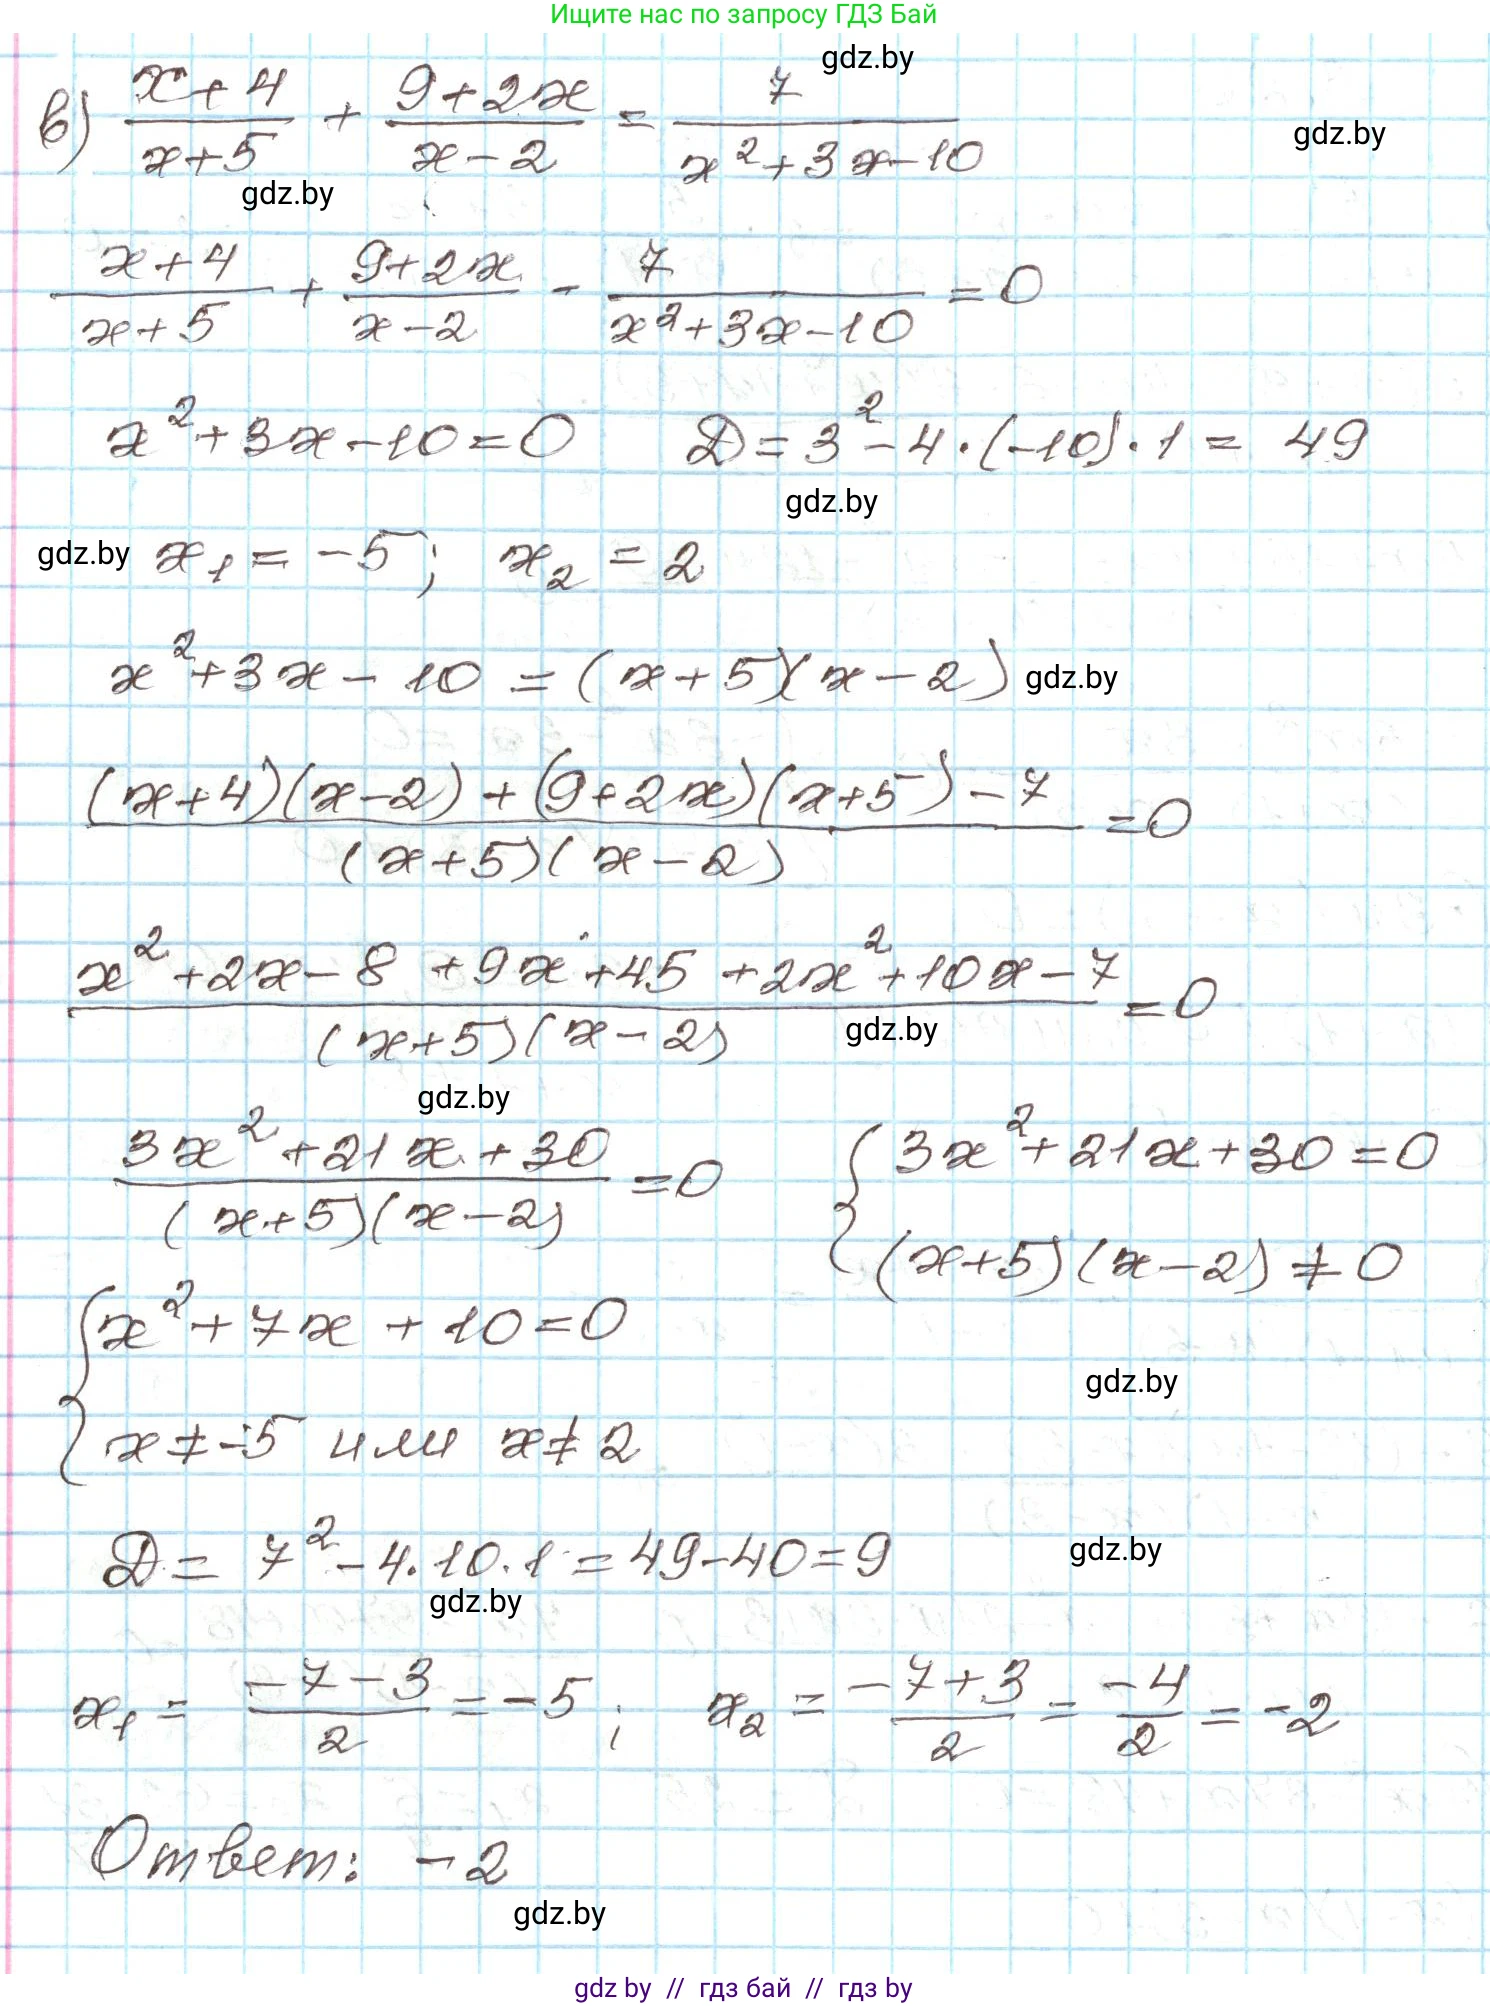 Ищите нас по запросу ГДЗ Бай
gdz.by
в) (x+4)/(x+5) + (9+2x)/(x-2) = 7/(x²+3x-10)
gdz.by
gdz.by
(x+4)/(x+5) + (9+2x)/(x-2) - 7/(x²+3x-10) = 0
x²+3x-10=0 D=3²-4·(-10)·1= 49
gdz.by
gdz.by x₁=-5; x₂=2
x²+3x-10=(x+5)(x-2) gdz.by
((x+4)(x-2)+(9+2x)(x+5)-7)/((x+5)(x-2)) =0
(x²+2x-8+9x+45+2x²+10x-7)/((x+5)(x-2)) =0
gdz.by
gdz.by
(3x²+21x+30)/((x+5)(x-2)) =0 { 3x²+21x+30=0
(x+5)(x-2)≠0
{ x²+7x+10=0
gdz.by
x≠-5 или x≠2
D= 7²-4·10·1=49-40=9 gdz.by
gdz.by
x₁= (-7-3)/2 =-5; x₂= (-7+3)/2 = (-4)/2 =-2
Ответ: -2
gdz.by
gdz by // гдз бай // гдз by